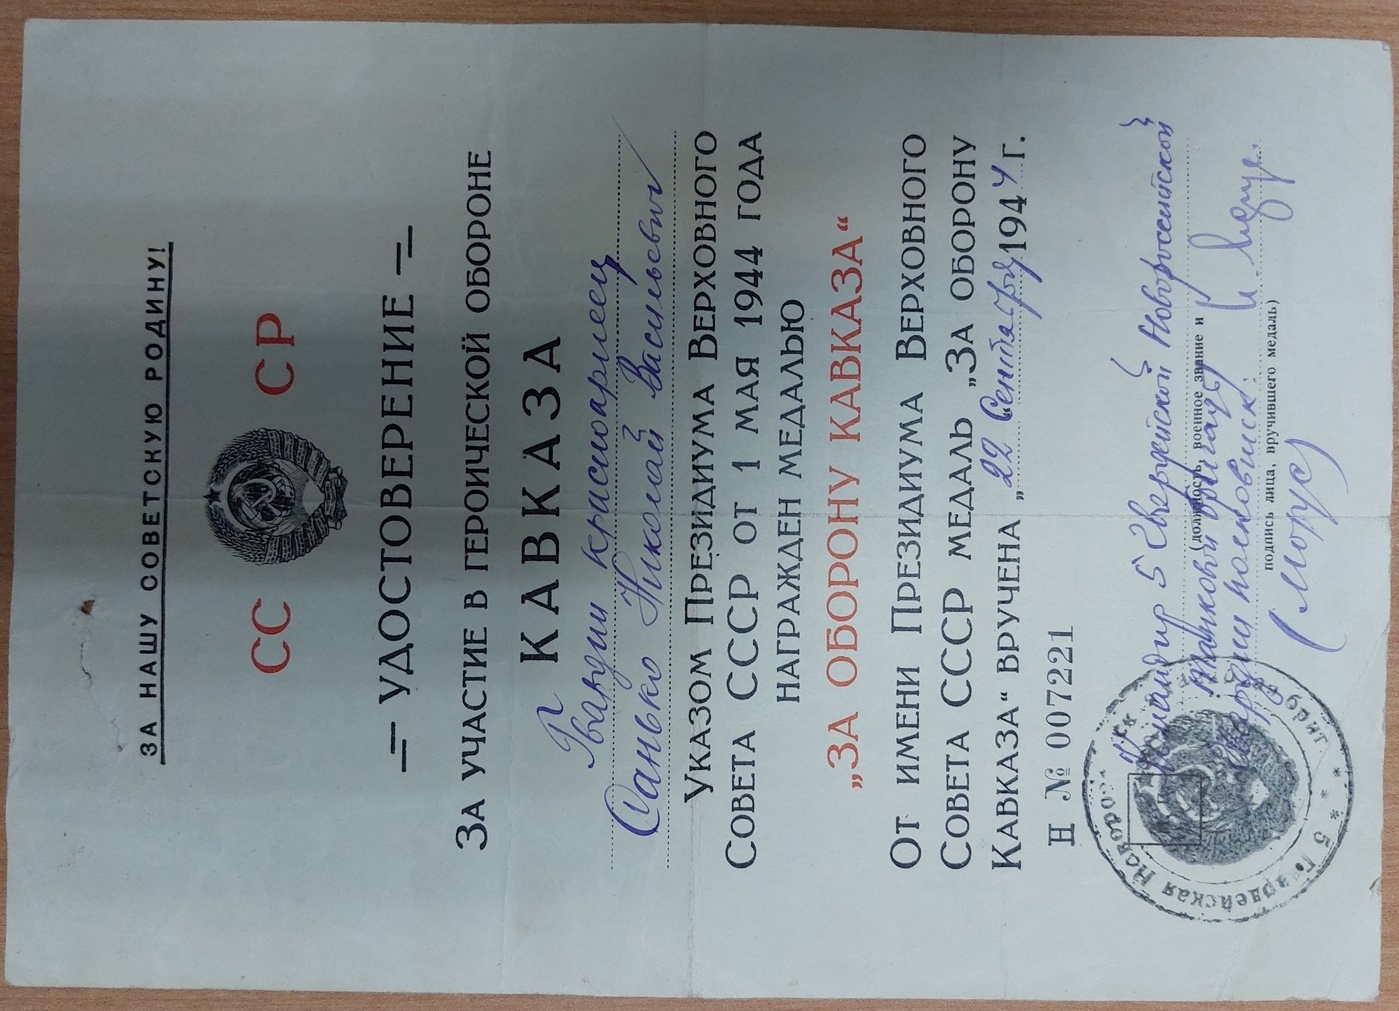 ЗА НАШУ СОВЕТСКУЮ РОДИНУ!
СС СР
УДОСТОВЕРЕНИЕ
ЗА УЧАСТИЕ В ГЕРОИЧЕСКОЙ ОБОРОНЕ
КАВКАЗА
Гвардии красноармеец
Санько Николай Васильевич
УКАЗОМ ПРЕЗИДИУМА ВЕРХОВНОГО
СОВЕТА СССР ОТ 1 МАЯ 1944 ГОДА
НАГРАЖДЕН МЕДАЛЬЮ
„ЗА ОБОРОНУ КАВКАЗА“
ОТ ИМЕНИ ПРЕЗИДИУМА ВЕРХОВНОГО
СОВЕТА СССР МЕДАЛЬ „ЗА ОБОРОНУ
КАВКАЗА“ ВРУЧЕНА „22“ Сентября 1944 г.
Н № 007221
Командир 5 Гвардейской Новороссийской
(должность, военное звание и
танковой бригады
Гвардии полковник
подпись лица, вручившего медаль)
(Морус)
* * * 5 Гвардейская Новоросийск бриг.